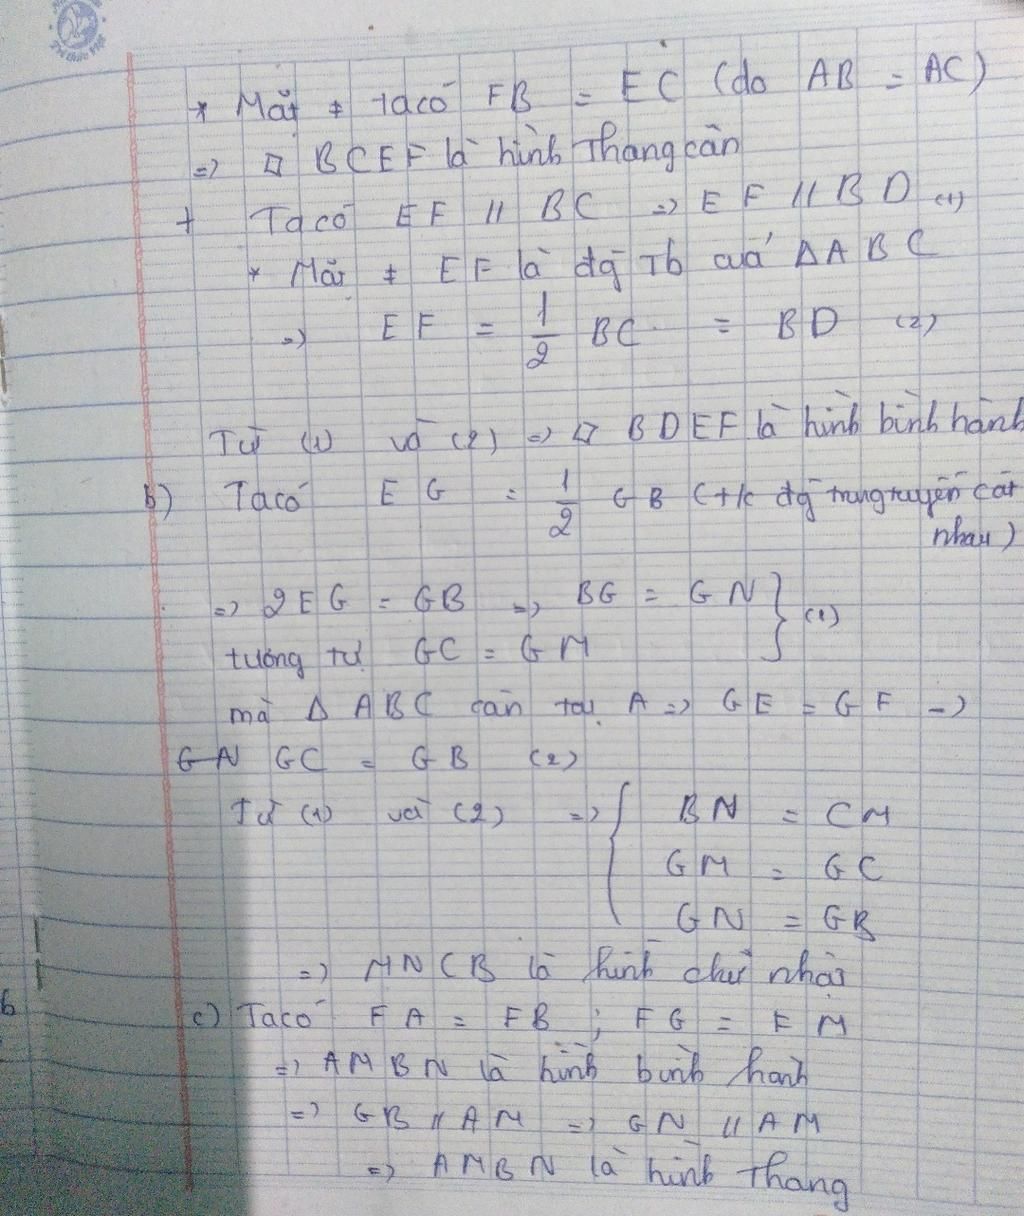 * Mặt ≠ ta có FB = EC (do AB = AC)
=> ▱ BCEF là hình thang cân
+ Ta có EF // BC => EF // BD (1)
* Mặt ≠ EF là đg Tb cuả ΔABC
=> EF = 1/2 BC = BD (2)
Từ (1) và (2) => ▱ BDEF là hình bình hành
b) Ta có EG = 1/2 GB (t/c đg trung tuyến cắt
nhau)
=> 2EG = GB => BG = GN } (1)
tương tự GC = GM
mà Δ ABC cân tại A => GE = GF =>
GN GC = GB (2)
Từ (1) và (2) => { BN = CM
GM = GC
GN = GB
=> MNCB là hình chữ nhật
c) Ta có FA = FB ; FG = FM
=> AMBN là hình bình hành
=> GB // AM => GN // AM
=> AMBN là hình Thang